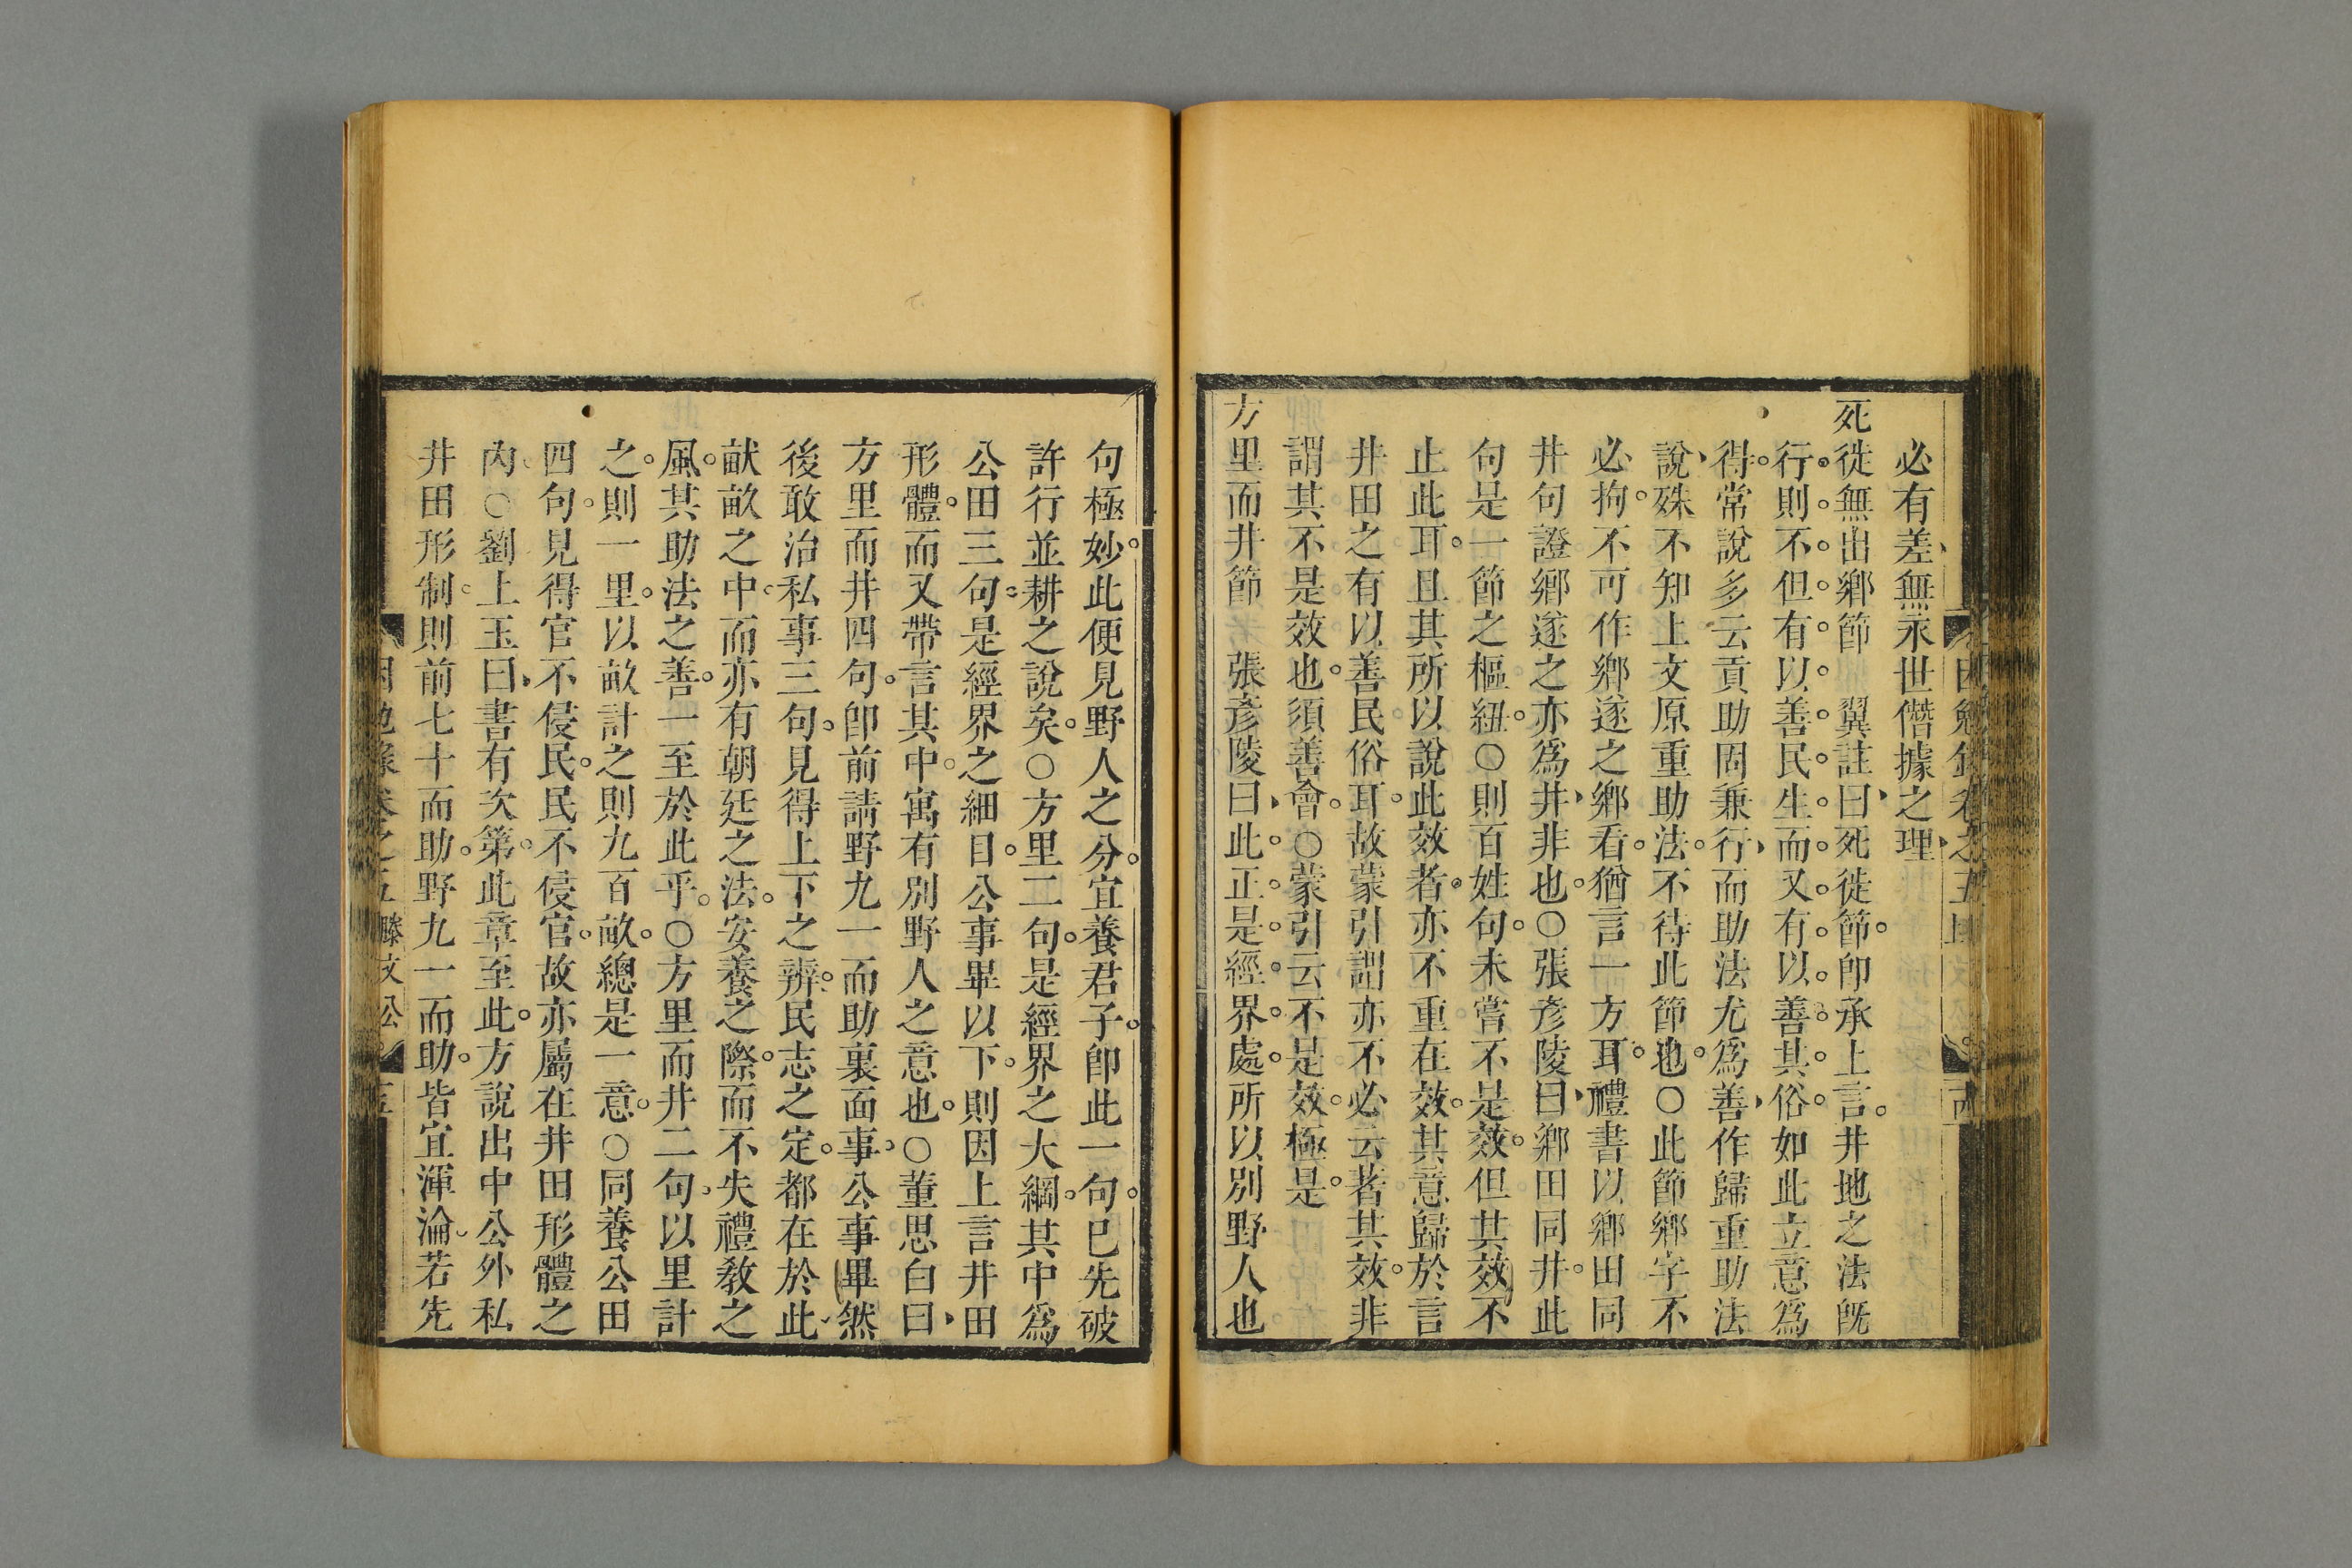 必有差無永世僭據之理
死徙無出鄉節　翼註曰死徙節卽承上言井地之法旣
行則不但有以善民生而又有以善其俗如此立意爲
得常說多云貢助固兼行而助法尤爲善作歸重助法
說殊不知上文原重助法不待此節也○此節鄉字不
必拘不可作鄉遂之鄉看猶言一方耳禮書以鄉田同
井句證鄉遂之亦爲井非也○張彥陵曰鄉田同井此
句是一節之樞紐○則百姓句未嘗不是效但其效不
止此耳且其所以說此效者亦不重在效其意歸於言
井田之有以善民俗耳故蒙引謂亦不必云著其效非
謂其不是效也須善會○蒙引云不是效極是
方里而井節　張彥陵曰此正是經界處所以別野人也
句極妙此便見野人之分宜養君子卽此一句已先破
許行並耕之說矣○方里二句是經界之大綱其中爲
公田三句是經界之細目公事畢以下則因上言井田
形體而又帶言其中寓有別野人之意也○董思白曰
方里而井四句卽前請野九一而助裏面事公事畢然
後敢治私事三句見得上下之辨民志之定都在於此
畎畝之中而亦有朝廷之法安養之際而不失禮教之
風其助法之善一至於此乎○方里而井二句以里計
之則一里以畝計之則九百畝總是一意○同養公田
四句見得官不侵民民不侵官故亦屬在井田形體之
內○劉上玉曰書有次第此章至此方說出中公外私
井田形制則前七十而助野九一而助皆宜渾淪若先